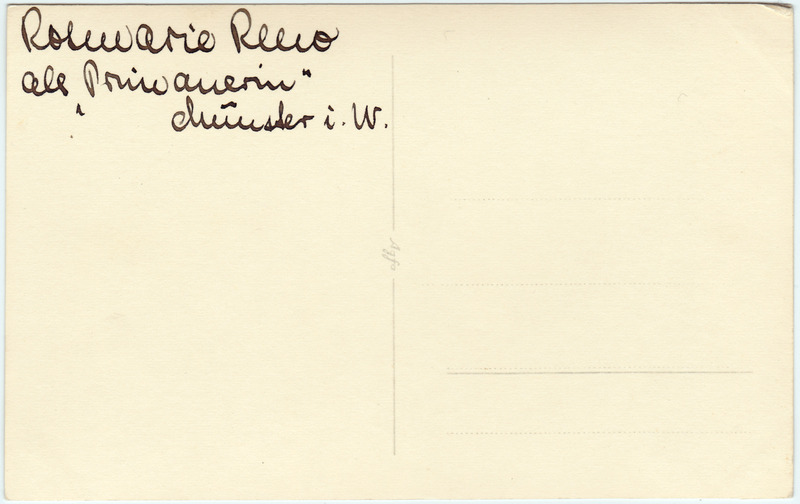 Rosmarie Reno
als Primanerin"
Münster i. W.
Agfa